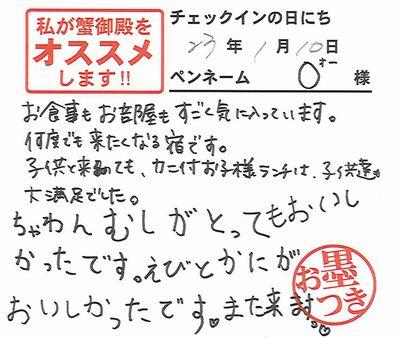 私が蟹御殿を
オススメ
します!!
チェックインの日にち
23年1月10日
ペンネーム O オー 様
お食事もお部屋もすごく気に入っています。
何度でも来たくなる宿です。
子供と来ても、カニ付お子様ランチは、子供達も
大満足でした。
ちゃわんむしがとってもおいし
かったです。えびとかにが
おいしかったです。また来ます。♡
お墨つき